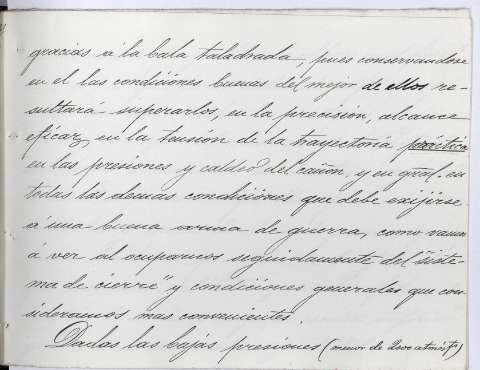 gracias á la bala taladrada, pues conservandose
en el las condiciones buenas del mejor de ellos re-
sultará superarlos, en la precisión, alcance
eficaz, en la tensión de la trayectoria práctica
en las presiones y caldeo del cañon, y en gral. en
todas las demas condiciones que debe exijirse
á una buena arma de guerra, como vamos
á ver al ocuparnos seguidamente del "siste-
ma de cierre" y condiciones generales que con-
sideramos mas convenientes.
Dadas las bajas presiones (menor de 2000 atmósfs)